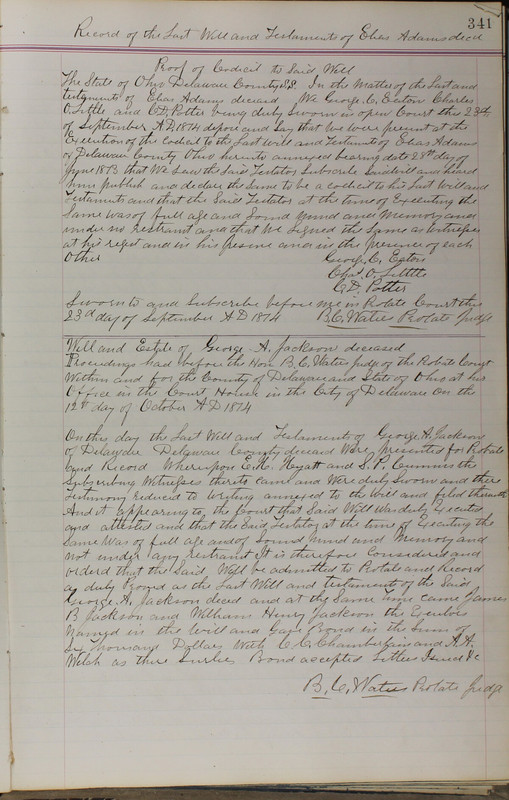 341
Record of the Last Will and Testament of Elias Adams decd
Proof of Codicil to Said Will
The State of Ohio Delaware County S.S. In the Matter of the Last and
testaments of Elias Adams deceased We George. C. Eaton Charles
O. Little and C.D. Potter being duly Sworn in open Court this 23rd
of September A.D. 1874 depose and Say that we were present at the
Execution of the Codicil to the Last Will and Testament of Elias Adams
of Delaware County Ohio hereto annexed bearing date 28th day of
June 1873 that We Saw the Said Testator Subscribe Said will and heard
him publish and declare the Same to be a codicil to his Last Will and
Testaments and that the Said Testator at the time of Executing the
Same was of full age and Sound Mind and Memory and
under no restraint and that We Signed the Same as Witnesses
at his reqest and in his presence and in the presence of each
Other
George. C. Eaton
Chas. O. Little
C.D. Potter
Sworn to and Subscribe before me in Probate Court this
23d day of September A D 1874 B. C. Waters Probate Judge
Will and Estate of George. A. Jackson deceased
Proceedings had before the Hon B. C. Waters Judge of the Probate Court
Within and for the County of Delaware and State of Ohio at his
Office in the Court House in the City of Delaware on the
12th day of October A D 1874
On this day the Last Will and Testaments of George A. Jackson
of Delaware Delaware County deceased Were presented for Probate
and Record Whereupon E. M. Hyatt and S. P. Cummins the
Subscribing Witnesses thereto came and Were duly Sworn and there
Testimony reduced to Writing annexed to the Will and filed therewith
And it appearing to the Court that Said Will was duly Executed
and attested and that the Said Testator at the time of Executing the
Same Was of full age and of Sound Mind and Memory and
not under any restraint It is therefore Considered and
orderd that the Said Will be admitted to Probate and Record
as duly Proved as the Last Will and testament of the Said
George. A. Jackson deced and at the Same time came James
B Jackson and William Henry Jackson the Executors
Named in the Will and Gave Bond in the Sum of
Six thousand Dollars With C. C. Chamberlain and A. A.
Welch as there Sureties Bond accepted Letters Issued &c
B. C. Waters Probate Judge